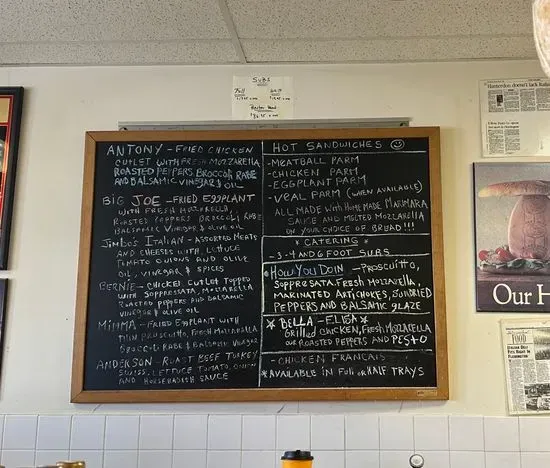 SUBS
Full
Half
ANTONY - FRIED CHICKEN
CUTLET WITH FRESH MOZZARELLA,
ROASTED PEPPERS, BROCCOLI RABE
AND BALSAMIC VINEGAR & OIL
BIG JOE - FRIED EGGPLANT
WITH FRESH MOZARELLA,
ROASTED PEPPERS, BROCCOLI RABE
BALSAMIC VINEGAR & OIL
JIMBO'S ITALIAN - ASSORTED MEATS
AND CHEESES WITH LETTUCE
TOMATO ONIONS AND OLIVE
OIL, VINEGAR & SPICES
BERNIE - CHICKEN CUTLET TOPPED
WITH SOPPRESATA, MOZZARELLA
ROASTED PEPPERS AND BALSAMIC
VINEGAR & OLIVE OIL
MIMMA - FRIED EGGPLANT WITH
THIN PROSCIUTTO, FRESH MOZZARELLA
BROCCOLI RABE & BALSAMIC VINEGAR
ANDERSON - ROAST BEEF TURKEY
SWISS, LETTUCE TOMATO, ONION
AND HORSERADISH SAUCE
HOT SANDWICHES ☺
-MEATBALL PARM
-CHICKEN PARM
-EGGPLANT PARM
-VEAL PARM (WHEN AVAILABLE)
ALL MADE WITH HOME MADE MARINARA
SAUCE AND MELTED MOZZARELLA
ON YOUR CHOICE OF BREAD!!!
* CATERING *
-3-4 AND 6 FOOT SUBS
*HOW YOU DOIN - PROSCIUTTO,
SOPPRESATA, FRESH MOZZARELLA,
MARINATED ARTICHOKES, SUNDRIED
PEPPERS AND BALSAMIC GLAZE
* BELLA - ELISA *
GRILLED CHICKEN, FRESH MOZZARELLA
OUR ROASTED PEPPERS AND PESTO
- CHICKEN FRANCAIS
*AVAILABLE IN FULL OR HALF TRAYS
Hunterdon doesn't lack Italian
Our H
FOOD